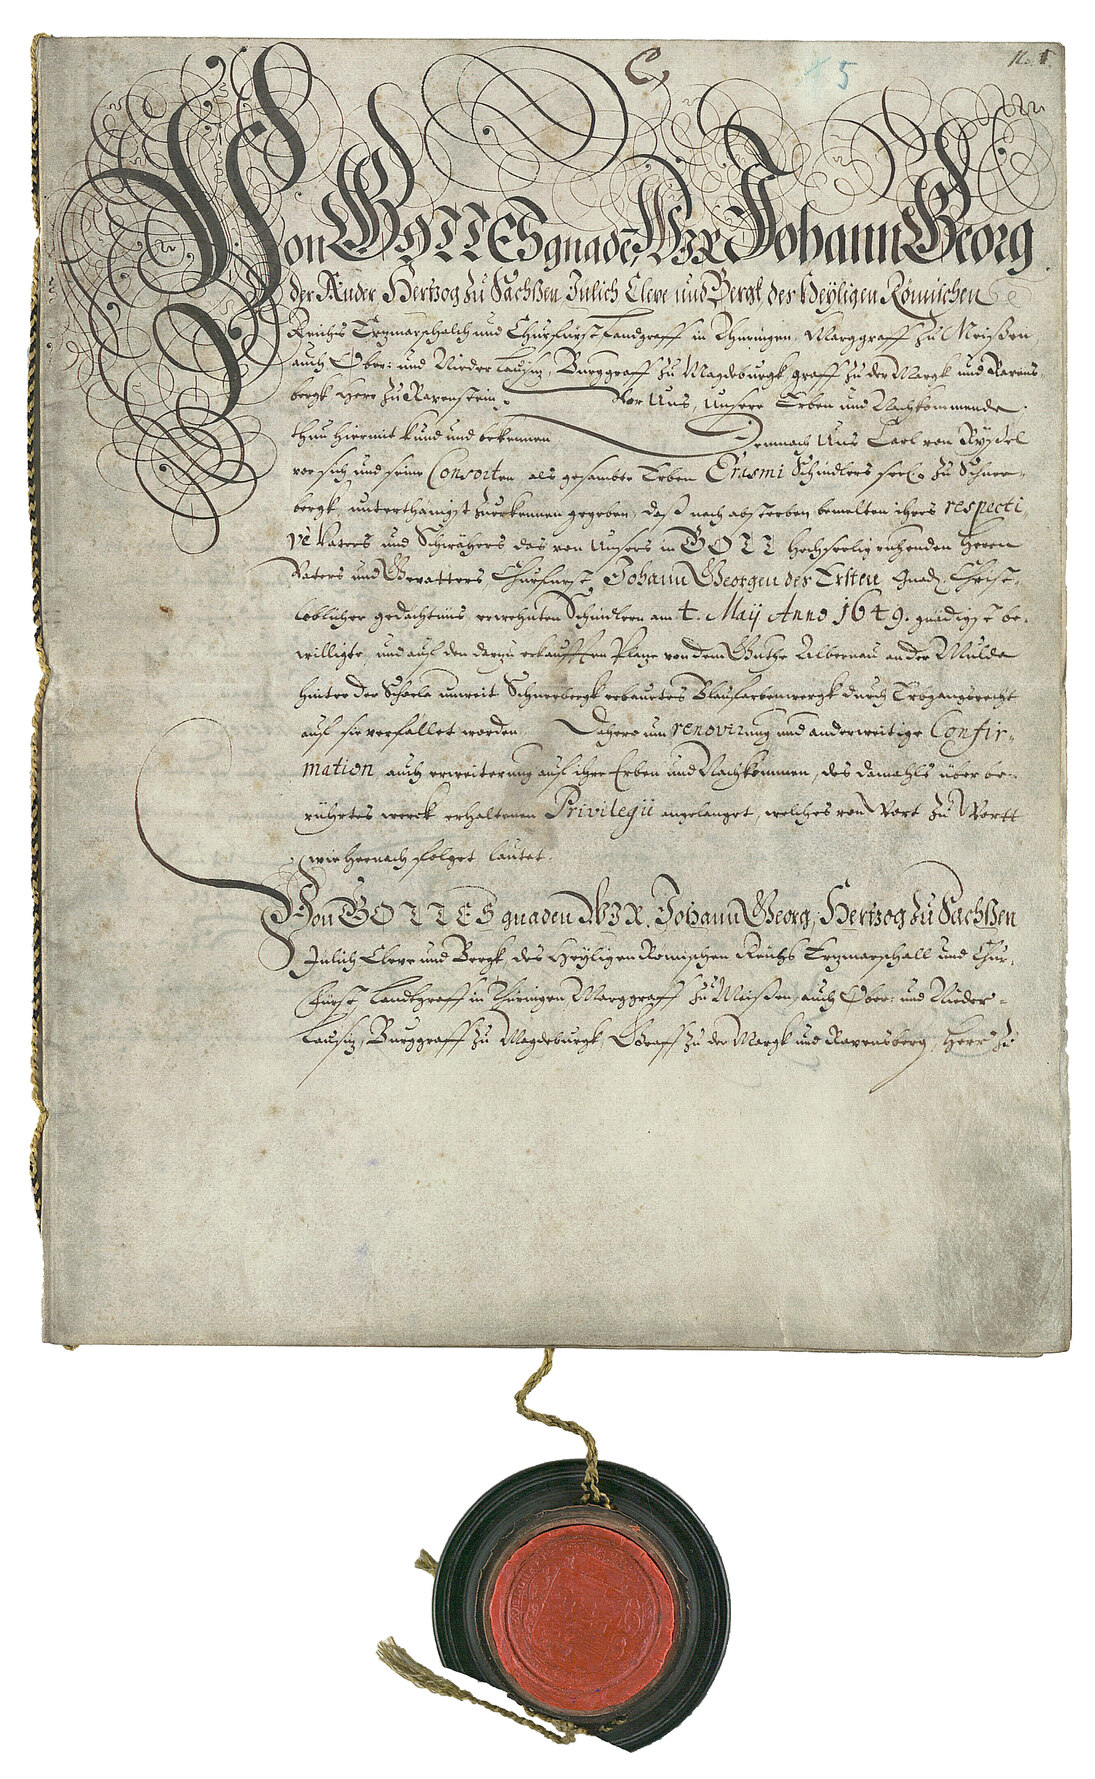 No. 1.
5
Von GOTTES gnadẽ, WIR Johann Georg
der Ander Hertzog zu Sachßen Jülich Cleve und Bergk des Heyligen Römischen
Reichs Ertzmarschalch und Churfürst Landgraff in Thüringen, Marggraff zu Meißen,
auch Ober: und Nieder Lausitz, Burggraff zu Magdeburgk graff zu der Margk und Ravens,
bergk Herr zu Ravenstein, Vor Uns, Unsere Erben und Nachkommende
thun hiermit kund und bekennen Demnach Uns Carl von Rÿssel
vor sich und seine Consorten, als gesambte Erben Erasmi Schindlers seel. zu Schnee-
bergk, unterthänigst zuerkennen gegeben, daß nach absterben bemelten ihres respecti,
vè Vaters und Schwähers das von Unsers in GOTT hochseelig ruhenden Herrn
Vaters und Gevatters, Churfürst Johann Georgen des Ersten, Gnad. Christ-
löblicher gedächtnüs, erwehnten Schindlern am 4. Maÿ Anno 1649. gnädigst be-
willigte, und auf den darzu erkaufften Plaze von dem Guthe Albernau an der Mulda
hinter der Scheela unweit Schneebergk erbauetes Blaufarbenwergk durch Erbgangsrecht
auf sie verfallet worden. Dahero um renovirung und anderweitige Confir-
mation auch erweiterung auf ihre Erben und Nachkommen, des damahls über be-
rührtes werck erhaltenen Privilegii angelanget, welches von Wort zu Wortt
wie hernach folget lautet.
Von GOTTES gnaden WIR. Johann Georg, Hertzog zu Sachßen
Jülich Cleve und Bergk, des Heyligen Römischen Reichs Ertzmarschall und Chur-
Fürst Landtgraff in Thüringen Marggraff zu Meißen, auch Ober: und Nieder-
Lausitz, Burggraff zu Magdeburgk, Graff zu der Margk und Ravensberg, Herr zu